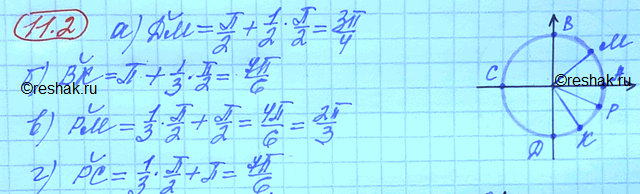 11.2 а) D͝M = π/2 + 1/2 · π/2 = 3π/4
б) B͝K = π + 1/3 · π/2 = 7π/6
в) P͝M = 1/3 · π/2 + π/2 = 4π/6 = 2π/3
г) P͝C = 1/3 · π/2 + π = 7π/6
B
M
C
A
P
K
D
©reshak.ru
©reshak.ru